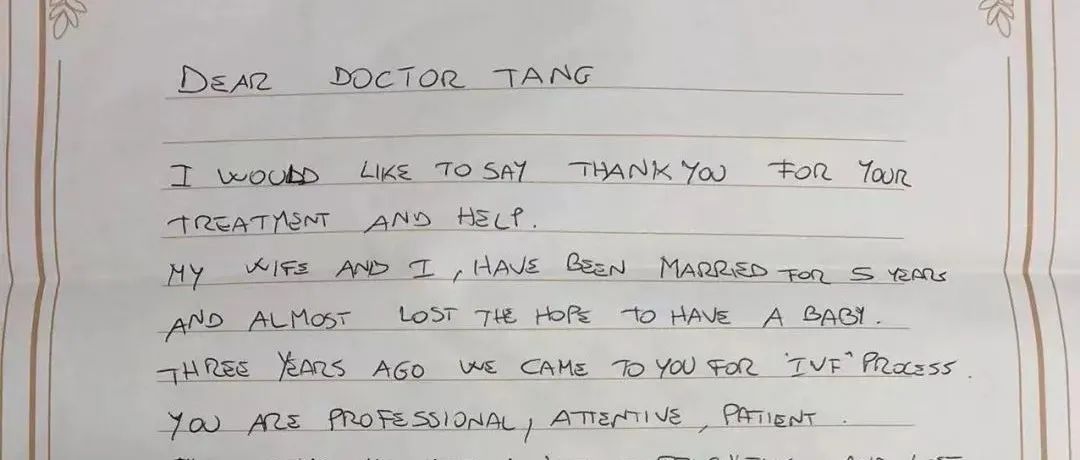 DEAR DOCTOR TANG
I WOULD LIKE TO SAY THANK YOU FOR YOUR
TREATMENT AND HELP.
MY WIFE AND I, HAVE BEEN MARRIED FOR 5 YEARS
AND ALMOST LOST THE HOPE TO HAVE A BABY.
THREE YEARS AGO WE CAME TO YOU FOR "IVF" PROCESS.
YOU ARE PROFESSIONAL, ATTENTIVE, PATIENT.